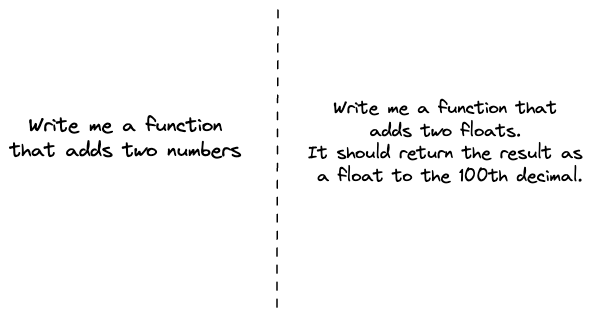 Write me a function
that adds two numbers
Write me a function that
adds two floats.
It should return the result as
a float to the 100th decimal.